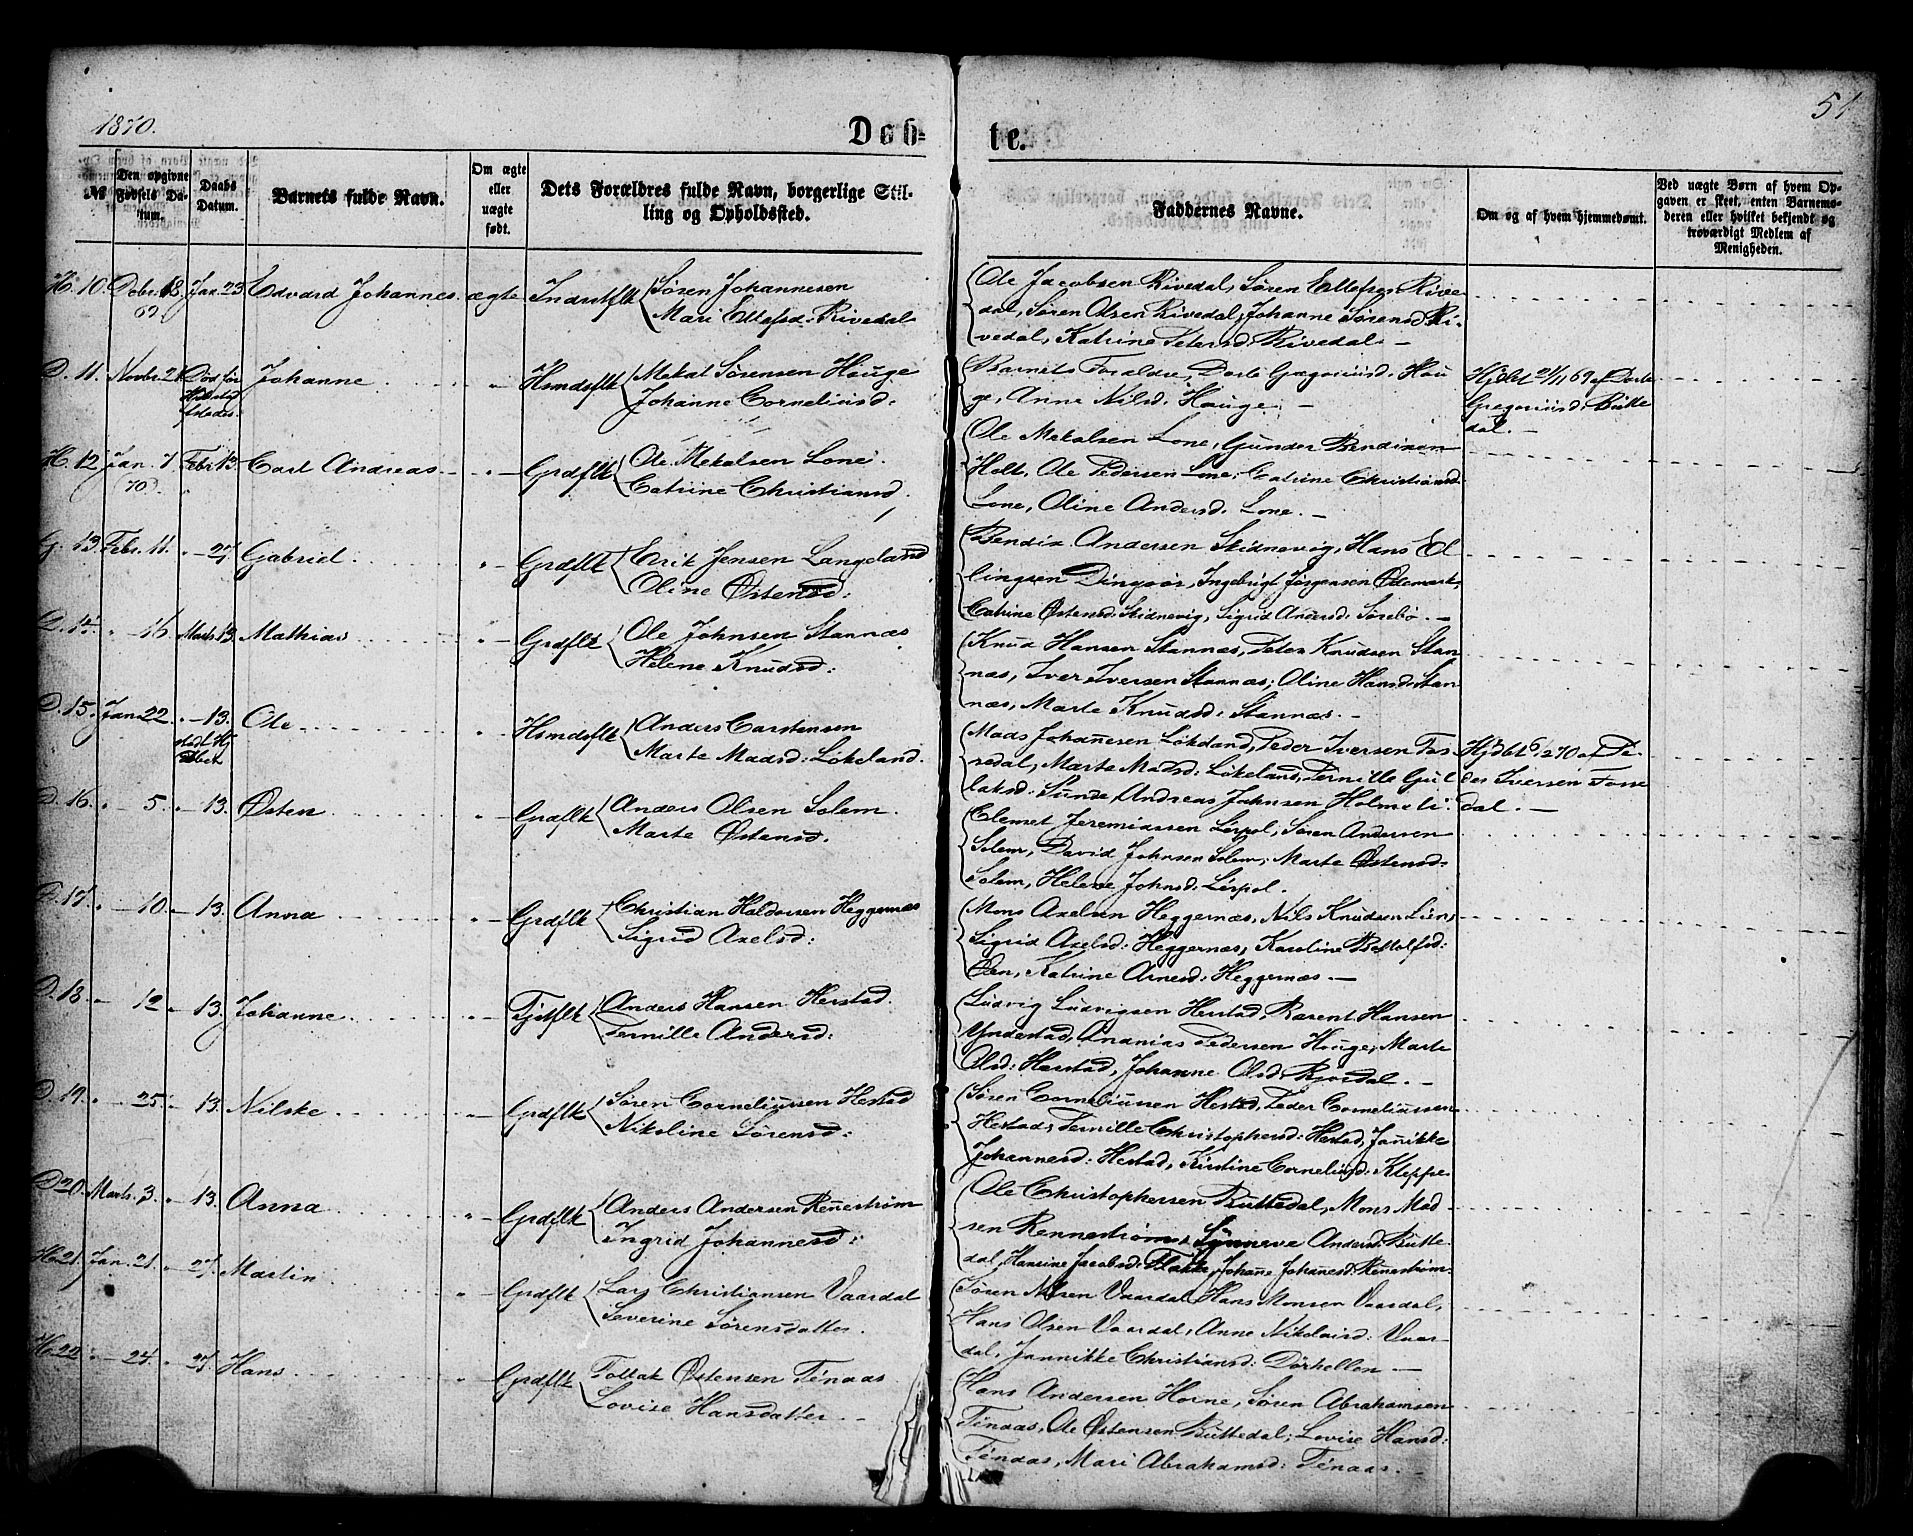 1870.
Døb-
te.
51
№
Den opgivne Fødsels Datum.
Daabs Datum.
Barnets fulde Navn.
Om ægte eller uægte født.
Dets Forældres fulde Navn, borgerlige Stilling og Opholdssted.
Faddernes Navne.
Om og af hvem hjemmedømt.
Ved uægte Børn af hvem Opgaven er skeet, enten Barnemoderen eller hvilket bekjendt og troværdigt Medlem af Menigheden.
H. 10. Debr. 18 69 Jan. 23 Edvard Johannes. ægte Indrstflk Søren Johannesen
Mari Ellefsd: Rivedal
Ole Jacobsen Rivedal, Søren Ellefsen Rive-
dal, Søren Olsen Rivedal, Johanne Sørensd. Ri-
vedal, Katrine Petersd. Rivedal. —
D. 11. Novbr. 21 Død før Johanne Hsmdsflk Mekal Sørensen Hauge
Johanne Corneliusd:
Barnets Forældre, Dorte Gregoriusd. Hau
ge, Anne Nilsd. Hauge. —
Hjdbt 21/11 69 af Dorte
Gregoriusd. Butte
dal. —
H. 12 Jan. 7 70 Febr. 13 Carl Andreas Grdflk Ole Mekalsen Lone
Catrine Christiansd.
Ole Mekalsen Lone, Gunder Bendixen
Holt, Ole Pedersen Lone, Catrine Christiansd.
Lone, Oline Andersd. Lone. —
G. 13. Febr. 11. " — 27. Gabriel Grdflk Erik Jensen Langeland
Oline Østensd:
Bendix Andersen Skidnevig, Hans El
lingsen Dingsør, Ingebrigt Jørgensen Ødemark,
Catrine Østensd. Skidnevig, Sigrid Andersd. Sørebø. —
D. 14. " — 16. Marts 13. Mathias Grdflk Ole Johnsen Stannæs
Helene Knudsd:
Knud Hansen Stannæs, Peter Knudsen Stan
næs, Iver Iversen Stannæs, Oline Hansd. Stan
næs, Marte Knudsd: Stannæs. —
D. 15. Jan. 22. " — 13. Ole Hsmdsflk Anders Carstensen
Marte Madsd: Løkeland.
Mads Johannesen Løkeland, Peder Iversen Fos
sedal, Marte Madsd: Løkeland, Pernille Gul
laksd: Sunde, Andreas Johnsen Holmeli
Hjdbt 6/2 70 af Pe-
der Iversen Fosse
dal. —
D. 16. " — 5. " — 13. Østen Grdflk Anders Olsen Solem
Marte Østensd.
Clemet Jeremiassen Lerpol, Søren Andersen
Solem, David Johnsen Solem, Marte Østensd:
Solem, Helene Johnsd: Lerpol.
D. 17. " — 10. — 13. Anna Grdflk Christian Haldorsen Heggernæs
Sigrid Axelsd:
Mons Axelsen Heggernæs, Nils Knudsen Lien,
Sigrid Axelsd: Heggernæs, Karoline Bottolfsd:
Øen, Katrine Arnesd: Heggernæs —
D. 18. — 12 — 13. Johanne Tjstflk Anders Hansen Herstad.
Pernille Andersd:
Ludvig Ludvigsen Herstad, Rasent Hansen
Yndestad, Ananias Pedersen Hauge, Marte
Olsd: Herstad, Johanne Olsd. —
D. 19. " — 25. — 13. Nilske Grdflk Søren Corneliussen Hestad
Nikoline Sørensd:
Søren Corneliussen Hestad, Peder Corneliussen
Hestad, Pernille Christophersd: Hestad, Jannikke
Johannesd: Hestad, Kirstine Corneliusd: Kleppe
D. 20. Marts. 3. " — 13. Anna Grdflk Anders Andersen Rennestrøm
Ingrid Johannesd:
Ole Christophersen Buttedal, Mons Mad
sen Rennestrøm, Synneve Andersd: Butte
dal, Hansine Jacobsd: Johanne Johannesd: Rennestrøm
H. 21. Jan. 21. " 27. Martin Grdflk Lars Christiansen Vaardal
Severine Sørensdatter.
Søren Nilsen Vaardal, Hans Monsen Vaardal,
Hans Olsen Vaardal, Anne Nikolaisd: Vaar-
dal, Jannikke Christiansd: Dørhellen —
H. 22 " — 24. " 27. Hans Grdflk Follak Østensen Tenaas
Lovise Hansdatter —
Hans Andersen Horne, Søren Abrahamsen
Tenaas, Ole Østensen Buttedal, Lovise Hansd:
Tenaas, Mari Abrahamsd: Tenaas. —